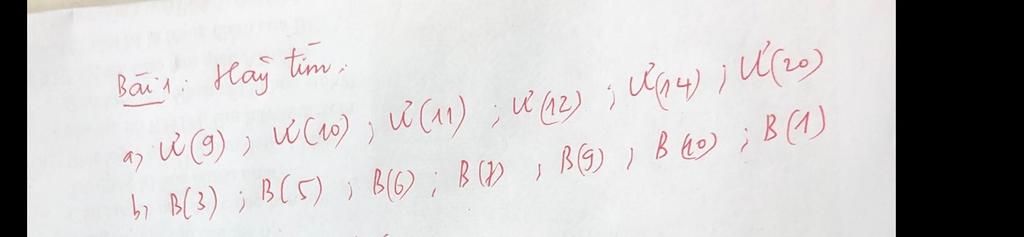 Bài 1: Hãy tìm:
a, Ư(9) ; Ư(10) ; Ư(11) ; Ư(12) ; Ư(14) ; Ư(20)
b, B(3) ; B(5) ; B(6) ; B(7) ; B(9) ; B(10) ; B(1)